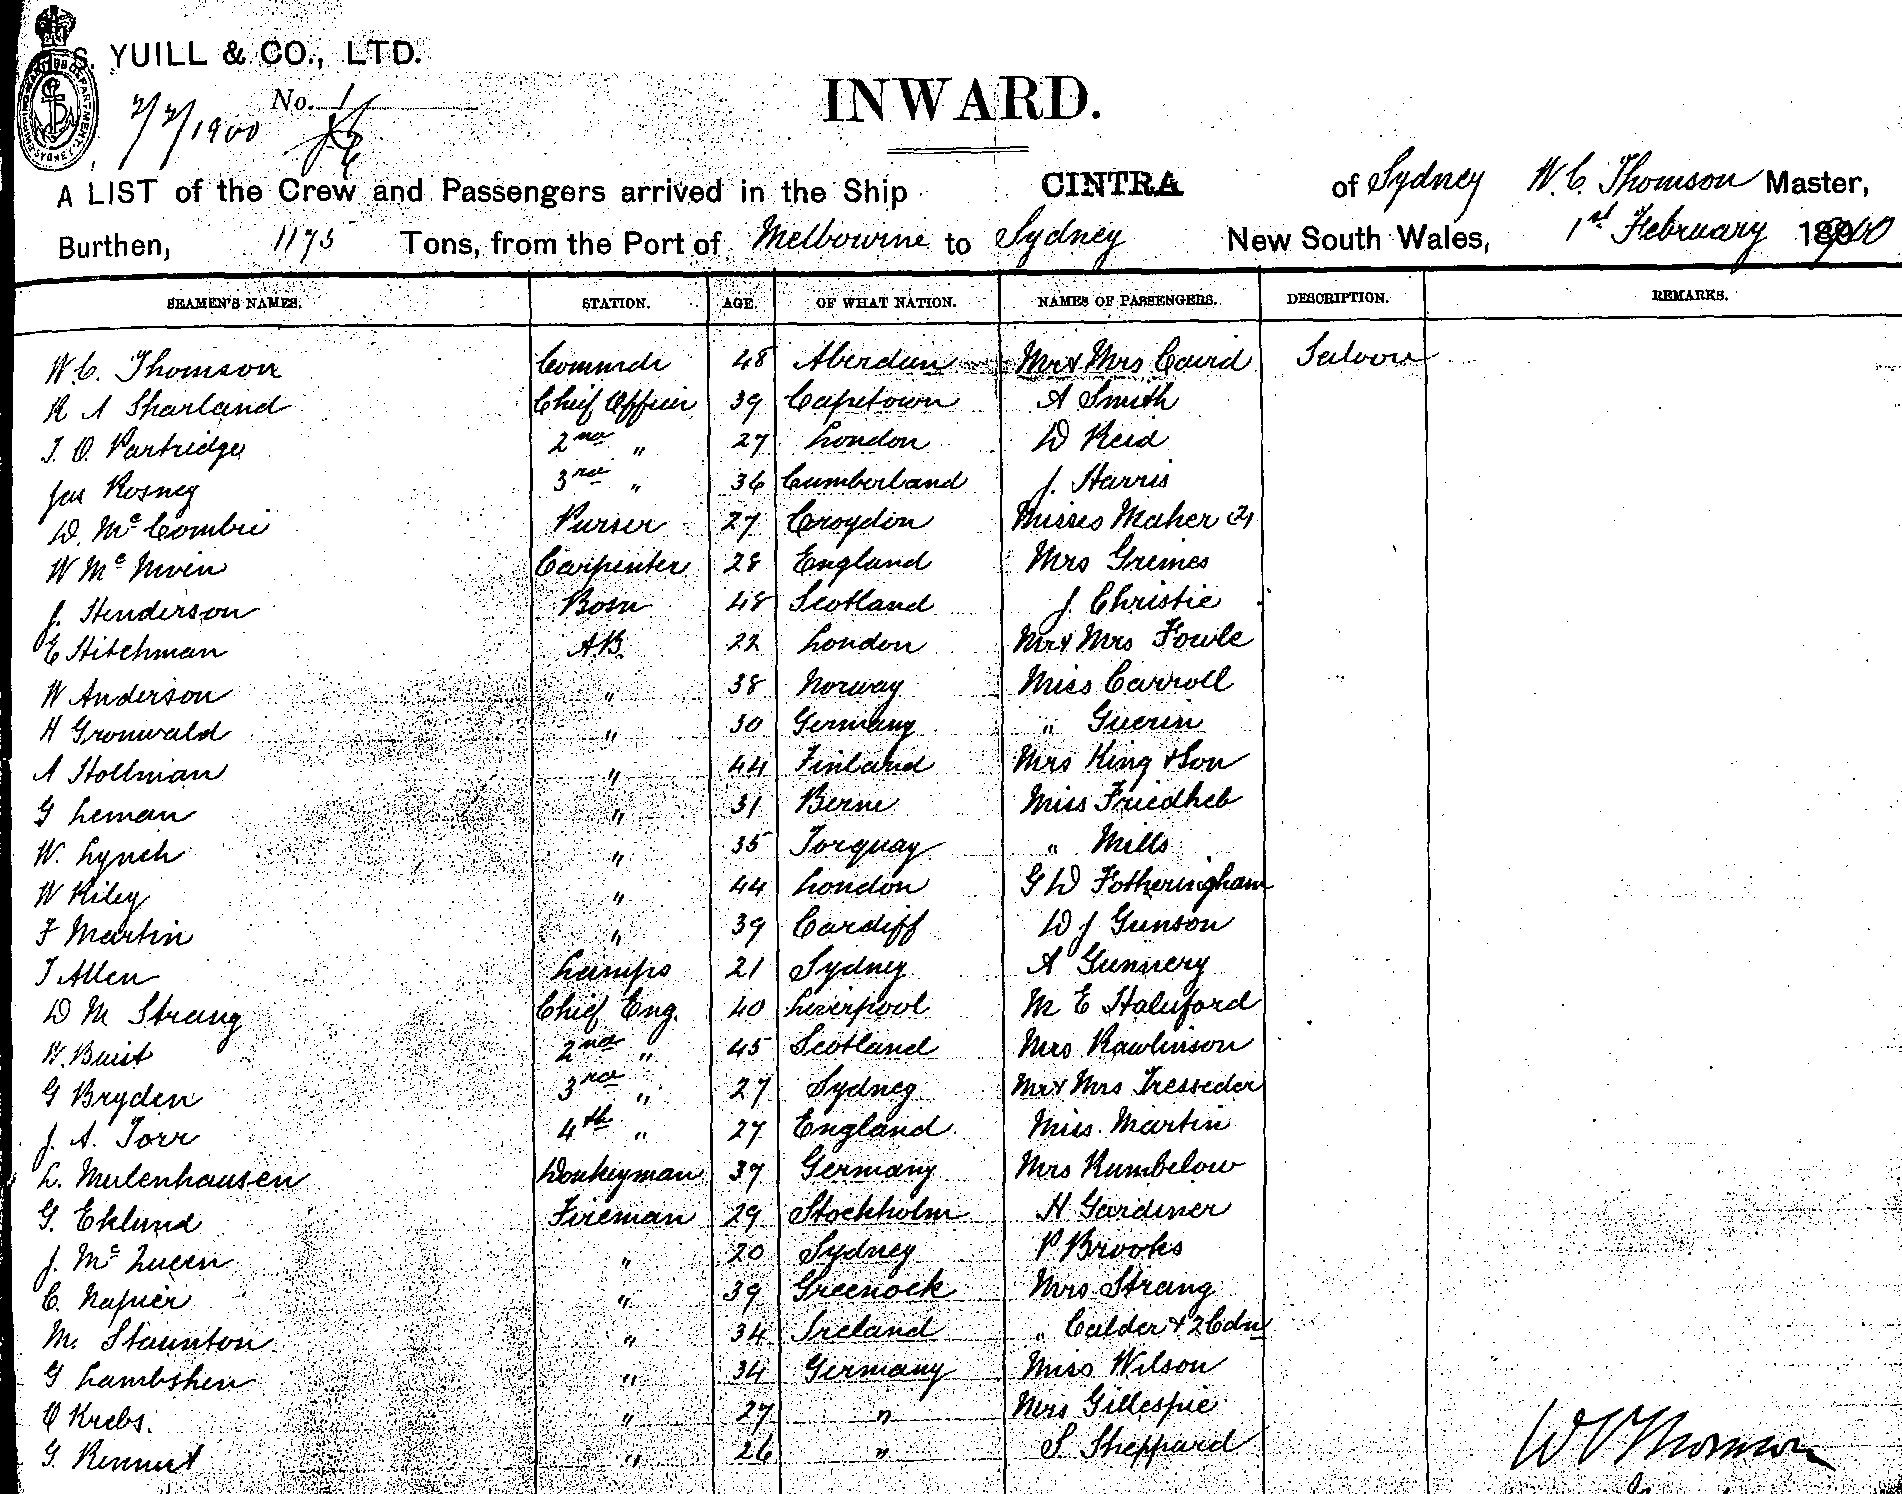 S. YUILL & CO., LTD.
No. 1
2/2/1900
INWARD.
A LIST of the Crew and Passengers arrived in the Ship CINTRA of Sydney W. C. Thomson Master,
Burthen, 1175 Tons, from the Port of Melbourne to Sydney New South Wales, 1st February 1900
SEAMEN'S NAMES. STATION. AGE. OF WHAT NATION. NAMES OF PASSENGERS. DESCRIPTION. REMARKS.
W. C. Thomson Commdr 48 Aberdeen Mr & Mrs Caird Saloon
R A Sharland Chief Officer 39 Capetown A Smith
J. O. Partridge 2nd " 27 London D Reid
Jas Rosney 3rd " 36 Cumberland J. Harris
D. McCombie Purser 27 Croydon Misses Maher (2)
W McNiven Carpenter 28 England Mrs Grimes
J. Henderson Bosn 48 Scotland J Christie
E Hitchman A.B. 22 London Mr & Mrs Fowle
W Anderson " 38 Norway Miss Carroll
H Gronwald " 30 Germany " Guerin
A Hollman " 44 Finland Mrs King & Son
G Leman " 31 Berne Miss Friedheb
W. Lynch " 35 Torquay " Mills
W Riley " 44 London G W Fotheringham
F Martin " 39 Cardiff W J Gunson
T Allen Lamps 21 Sydney A Gunnery
D M Strang Chief Eng. 40 Liverpool M E
W. Buist 2nd " 45 Scotland Mrs Rawlinson
G Bryden 3rd " 27 Sydney Mr & Mrs Tresseder
J. A. Torr 4th " 27 England Miss Martin
L. Mulenhausen Donkeyman 37 Germany Mrs Rumbelow
G. Eklund Fireman 29 Stockholm H Gardiner
J. McLuen " 20 Sydney P Brooks
C. Napier " 39 Greenock Mrs Strang
M. Staunton " 34 Ireland " Calder & 2 Cdn
G Lambshen " 34 Germany Miss Wilson
O Krebs. " 27 " Mrs Gillespie
G. Rennert " 26 " S Sheppard
W C Thomson